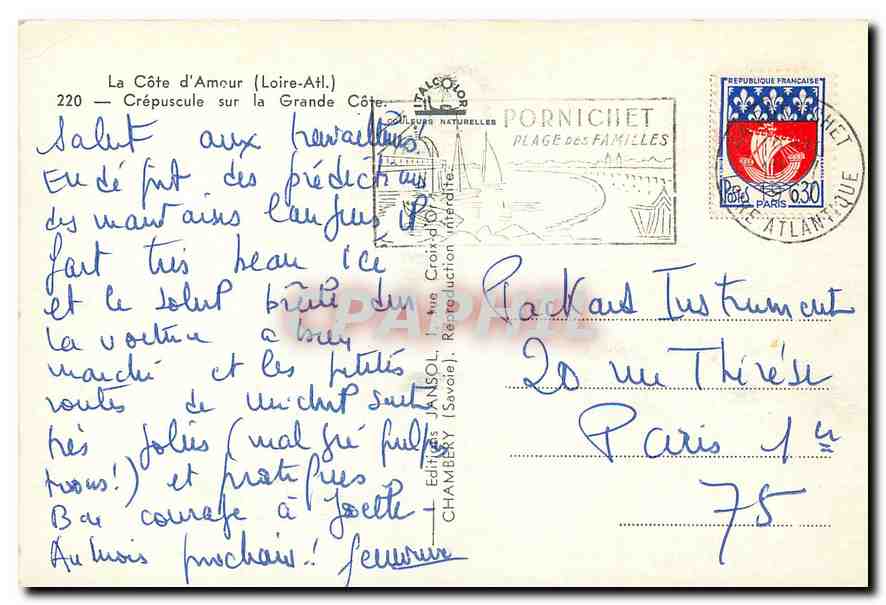 La Côte d'Amour (Loire-Atl.)
220 — Crépuscule sur la Grande Côte.
ITALCOLOR
COULEURS NATURELLES
PORNICHET
PLAGE DES FAMILLES
REPUBLIQUE FRANÇAISE
Postes
0,30
PARIS
LOIRE ATLANTIQUE
Salut aux travailleurs!
En dépit des prédictions
des mauvaises langues il
fait très beau ici
et le soleil brille dur
La voiture a bien
marché et les petites
routes de Michel sont
très jolies (malgré
!) et pratiques
Bon courage à Joëlle –
Au mois prochain! Geneviève
Editions JANSOL, 1, rue Croix-d'Or
CHAMBERY (Savoie). Reproduction interdite.
CPAPHIL
Packard Instrument
20 rue Thérèse
Paris 1er
75